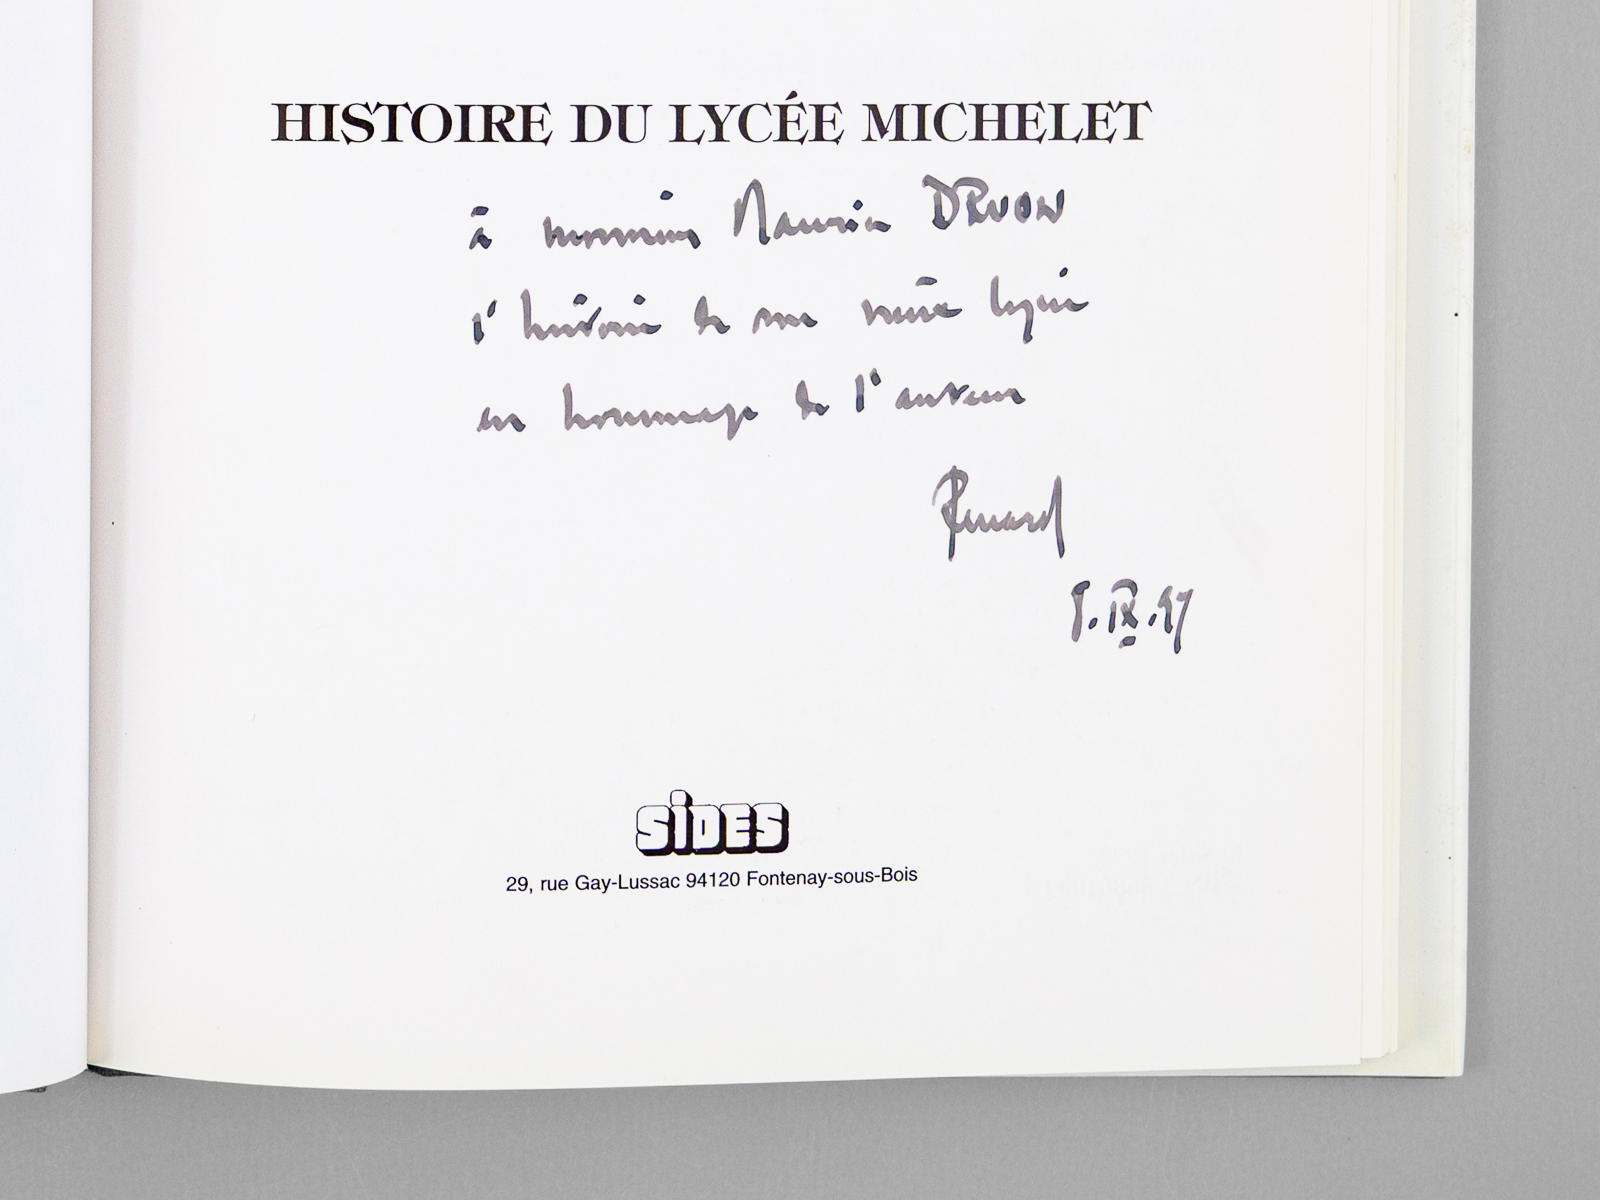 HISTOIRE DU LYCÉE MICHELET
à monsieur Maurice DRUON
l'histoire de lycée
en hommage de l'auteur
.IX.97
SiDES
29, rue Gay-Lussac 94120 Fontenay-sous-Bois